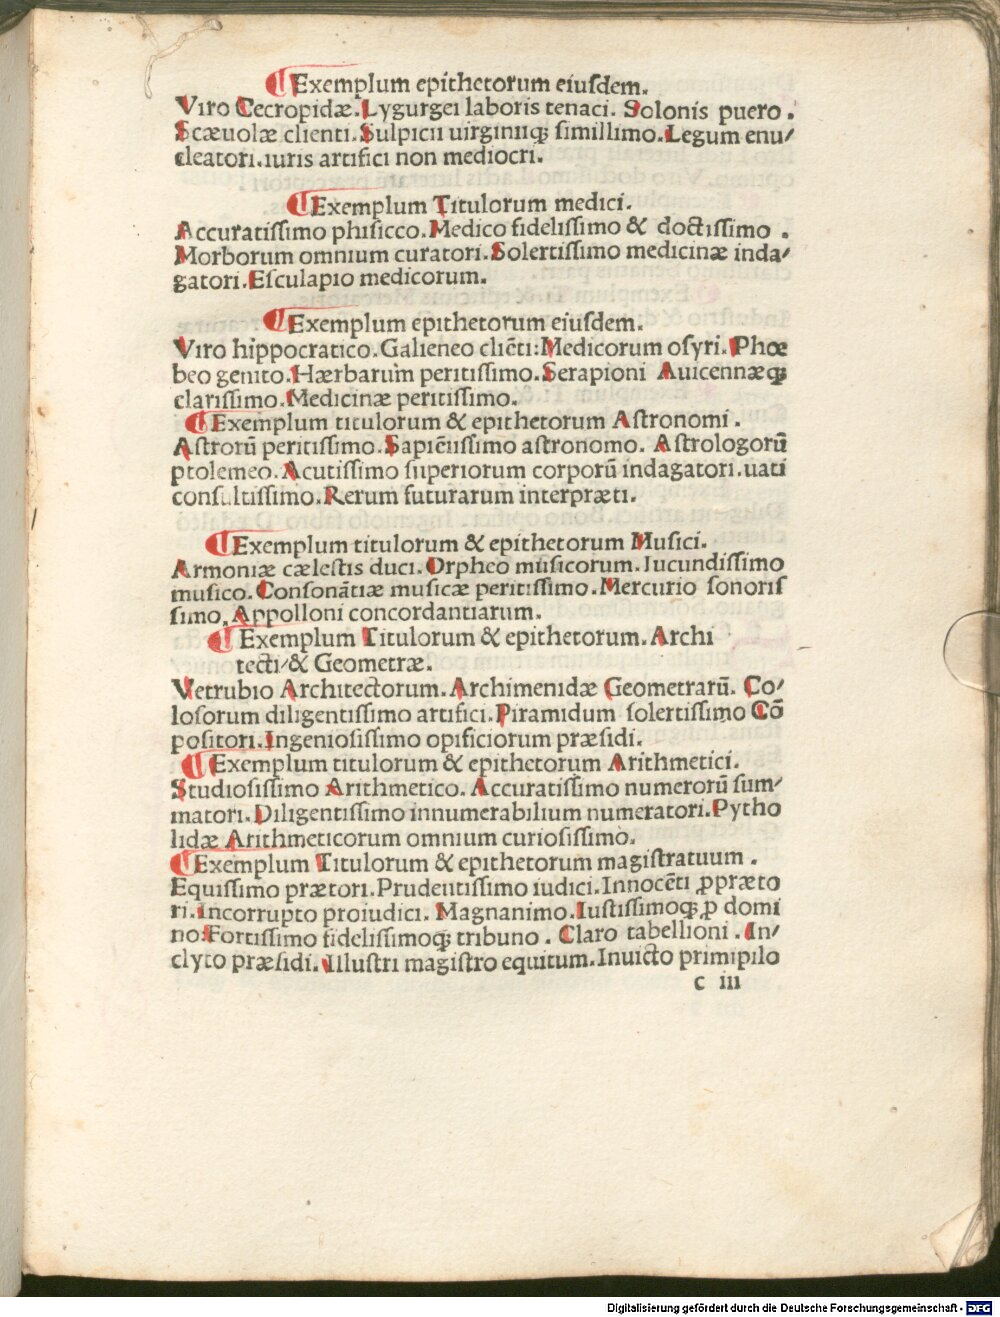 ¶Exemplum epithetorum eiuſdem.
Viro Cecropidæ. Lygurgei laboris tenaci. Solonis puero.
Scæuolæ clienti. Sulpicii uirginiiqꝫ ſimillimo. Legum enu/
cleatori. iuris artifici non mediocri.
¶Exemplum Titulorum medici.
Accuratiſſimo phiſicco. Medico fideliſſimo & doctiſſimo.
Morborum omnium curatori. Solertiſſimo medicinæ inda/
gatori. Eſculapio medicorum.
¶Exemplum epithetorum eiuſdem.
Viro hippocratico. Galieneo cliēti: Medicorum oſyri. Phœ
beo genito. Hærbarum peritiſſimo. Serapioni Auicennæqꝫ
clariſſimo. Medicinæ peritiſſimo.
¶Exemplum titulorum & epithetorum Aſtronomi.
Aſtrorū peritiſſimo. Sapiēiiſſimo aſtronomo. Aſtrologorū
ptolemeo. Acutiſſimo ſuperiorum corporū indagatori. uati
conſultiſſimo. Rerum futurarum interpræti.
¶Exemplum titulorum & epithetorum Muſici.
Armoniæ cæleſtis duci. Orpheo muſicorum. Iucundiſſimo
muſico. Conſonātiæ muſicæ peritiſſimo. Mercurio ſonoriſ
ſimo. Appolloni concordantiarum.
¶Exemplum Titulorum & epithetorum. Archi
tecti/& Geometræ.
Vetrubio Architectorum. Archimenidæ Geometrarū. Co/
loſorum diligentiſſimo artifici. Piramidum ſolertiſſimo Cō
poſitori. Ingenioſiſſimo opificiorum præſidi.
¶Exemplum titulorum & epithetorum Arithmetici.
Studioſiſſimo Arithmetico. Accuratiſſimo numerorū ſum/
matori. Diligentiſſimo innumerabilium numeratori. Pytho
lidæ Arithmeticorum omnium curioſiſſimo.
¶Exemplum Titulorum & epithetorum magiſtratuum.
Equiſſimo prætori. Prudentiſſimo iudici. Innocēti ꝓpræto
ri. Incorrupto proiudici. Magnanimo. Iuſtiſſimoqꝫ ꝓ domi
no: Fortiſſimo fideliſſimoqꝫ tribuno. Claro tabellioni. In/
clyto præſidi. Illuſtri magiſtro equitum. Inuicto primipilo
c iii
Digitalisierung gefördert durch die Deutsche Forschungsgemeinschaft - DFG